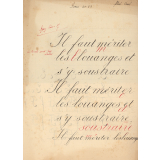 Il faut mériter
les louanges et
s'y soustraire
Il faut mériter
les louanges et
s'y soustraire
soustraire
Il faut mériter les louanges